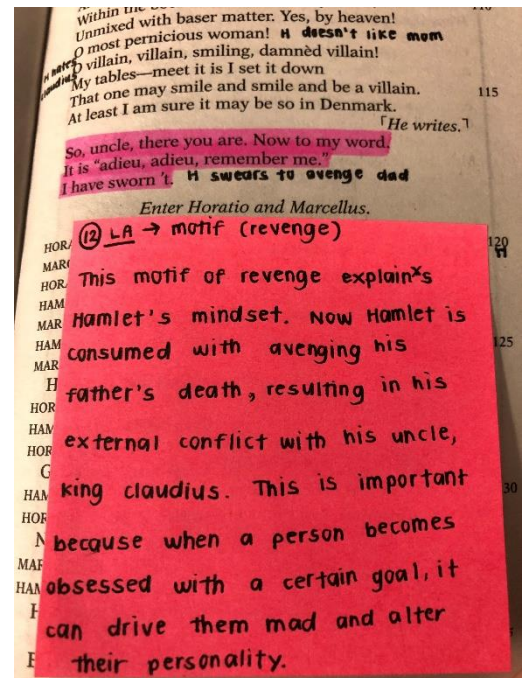 Within the
Unmixed with baser matter. Yes, by heaven!
O most pernicious woman! H doesn't like mom
O villain, villain, smiling, damnèd villain!
H hates
claudius
My tables—meet it is I set it down
That one may smile and smile and be a villain.
115
At least I am sure it may be so in Denmark.
⌜He writes.⌝
So, uncle, there you are. Now to my word.
It is “adieu, adieu, remember me.”
I have sworn ’t. H swears to avenge dad
Enter Horatio and Marcellus.
120
H
HOR
MAR
HOR
HAM
MAR
HAM
125
MAR
H
HOR
HAM
HOR
G
HAM
30
HOR
N
MAR
HAM
H
12 LA → motif (revenge)
This motif of revenge explains
Hamlet's mindset. Now Hamlet is
consumed with avenging his
father's death, resulting in his
external conflict with his uncle,
king claudius. This is important
because when a person becomes
obsessed with a certain goal, it
can drive them mad and alter
their personality.